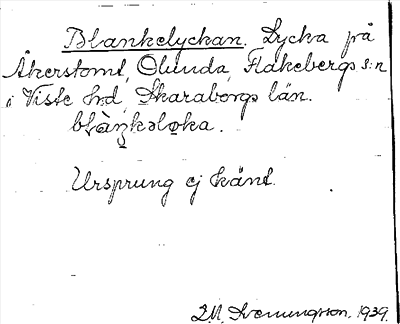 Blankelyckan. Lycka på
Åkerstomt, Olunda, Flakebergs s:n
i Viste hrd, Skaraborgs län.
Ursprung ej känt.
Svenungsson, 1939.